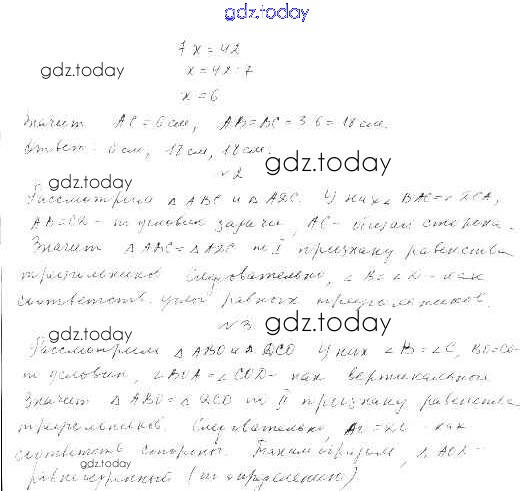 gdz.today
7x = 42
gdz.today
x = 42 : 7
x = 6
Значит AC = 6 см, AB = BC = 3·6 = 18 см.
Ответ: 6 см, 18 см, 18 см.
gdz.today
№2
gdz.today
Рассмотрим △ABC и △ADC. У них ∠BAC = ∠DCA,
AB = CD - по условию задачи, AC - общая сторона.
Значит △ABC = △ADC по I признаку равенства
треугольников. Следовательно, ∠B = ∠D - как
соответств. углы равных треугольников.
№3
gdz.today
gdz.today
Рассмотрим △ABO и △DCO. У них ∠B = ∠C, BO = CO -
по условию, ∠BOA = ∠COD - как вертикальные
Значит △ABO = △DCO по II признаку равенства
треугольников. Следовательно, как
соответств стороны. Таким образом, △AOD -
gdz.today
равнобедренный (по определению)